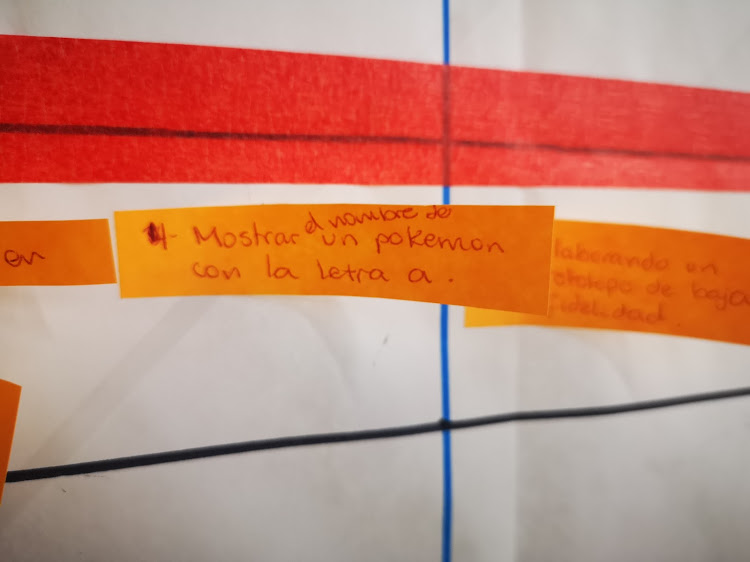 en
4- Mostrar el nombre de un pokemon
con la letra a.
laborando un
ototipo de baja
idelidad